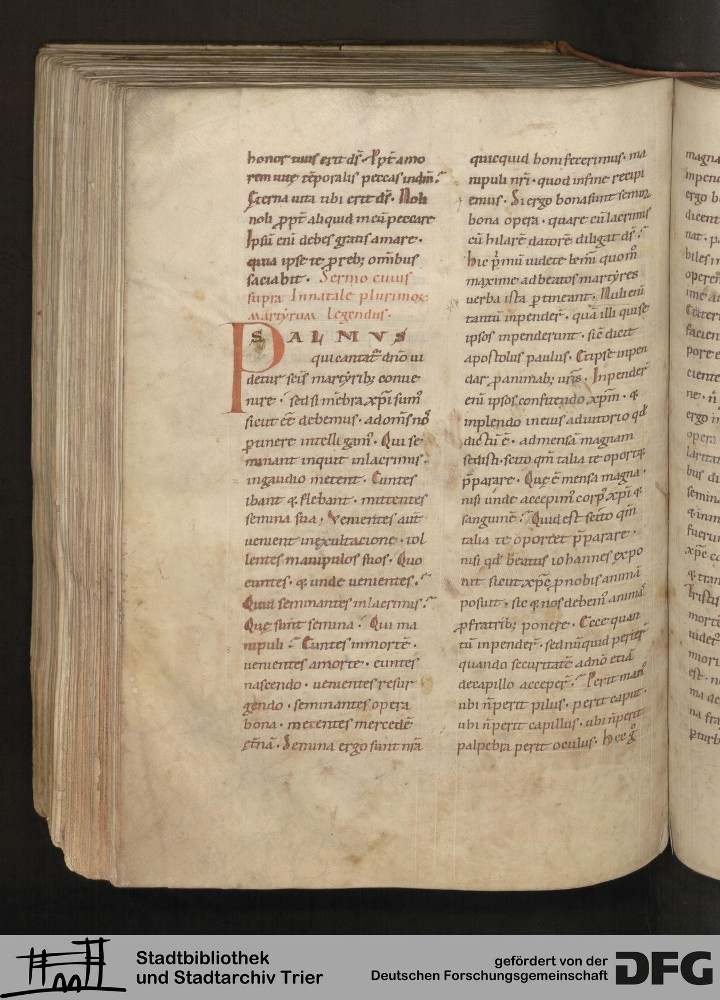 honor tuus erit ds̄. Ppt̄ amo
rem uitę tēporalis peccas in dm̄.
Ęterna uita tibi erit ds̄. Noli
noli ꝓpt̄ aliquid in eū peccare
Ipsū eni debes gratis amare.
quia ipse te p̄ reb; omībus
saciabit. Sermo cuius
supra In natale plurimoꝝ
martyrum legendus.
PSALMVS
qui cantat᷑ dn̄o ui
detur sc̄is martyrib; conue
nire. sed si mēbra xp̄i sum᷒
sicut eē debemus. ad om̄s nos̄
ꝑtinere intelligam᷒. Qui se
minant inquit in lacrimis.
in gaudio metent. Euntes
ibant & flebant. mittentes
semina sua, Venientes aūt
uenient in exultacione. tol
lentes manipulos suos. Quo
euntes. & unde uenientes.
Quid seminantes in lacrimis.
Quę sunt semina. Qui ma
nipuli. Euntes in mortē.
uenientes a morte. euntes
nascendo. uenientes resur
gendo. seminantes opera
bona. metentes mercedē
ęt̄nā. Semina ergo sunt nr̄a
quicquid boni fecerimus. ma
nipuli nr̄i. quod in fine recipi
emus. Si ergo bona sunt semina
bona opera. quare cū lacrimis
cū hilarē datorē diligat ds̄.
hic p̄mū uidete km̄i quom̄
maxime ad beatos martȳres
uerba ista ꝑtineant. Nulli enī
tantū inpender᷑. quā illi qui se
ipsos inpenderunt. sic̄ dicit
apostolus paulus. Et ipse inpen
dar ꝓ animab; uris̄. Inpender᷑
enī ipsos confitendo xp̄m. &
inplendo in eius adiutorio qd̄
dictū ē. ad mensā magnam
sedisti. scito qm̄ talia te oportet
p̄parare. Quę ē mensa magna.
nisi unde accepim᷒ corp᷒ xp̄i &
sanguinē. Quid est scito qm̄
talia te oportet p̄parare.
nisi qd̄ beatus iohannes expo
nit sicut xp̄c ꝓ nobis animā
posuit. sic & nos debem᷒ animas̄
ꝓ fratrib; ponere. Ecce quan
tū inpender᷑. sed nūquid periit
quando securitatē a dn̄o etiā
de capillo acceper᷑. Perit man᷒
ubi n̄ perit pilus. perit caput.
ubi n̄ perit capillus. ubi n̄ perit
palpebra perit oculus. Hec ḡ
Stadtbibliothek
und Stadtarchiv Trier
gefördert von der
Deutschen Forschungsgemeinschaft
DFG